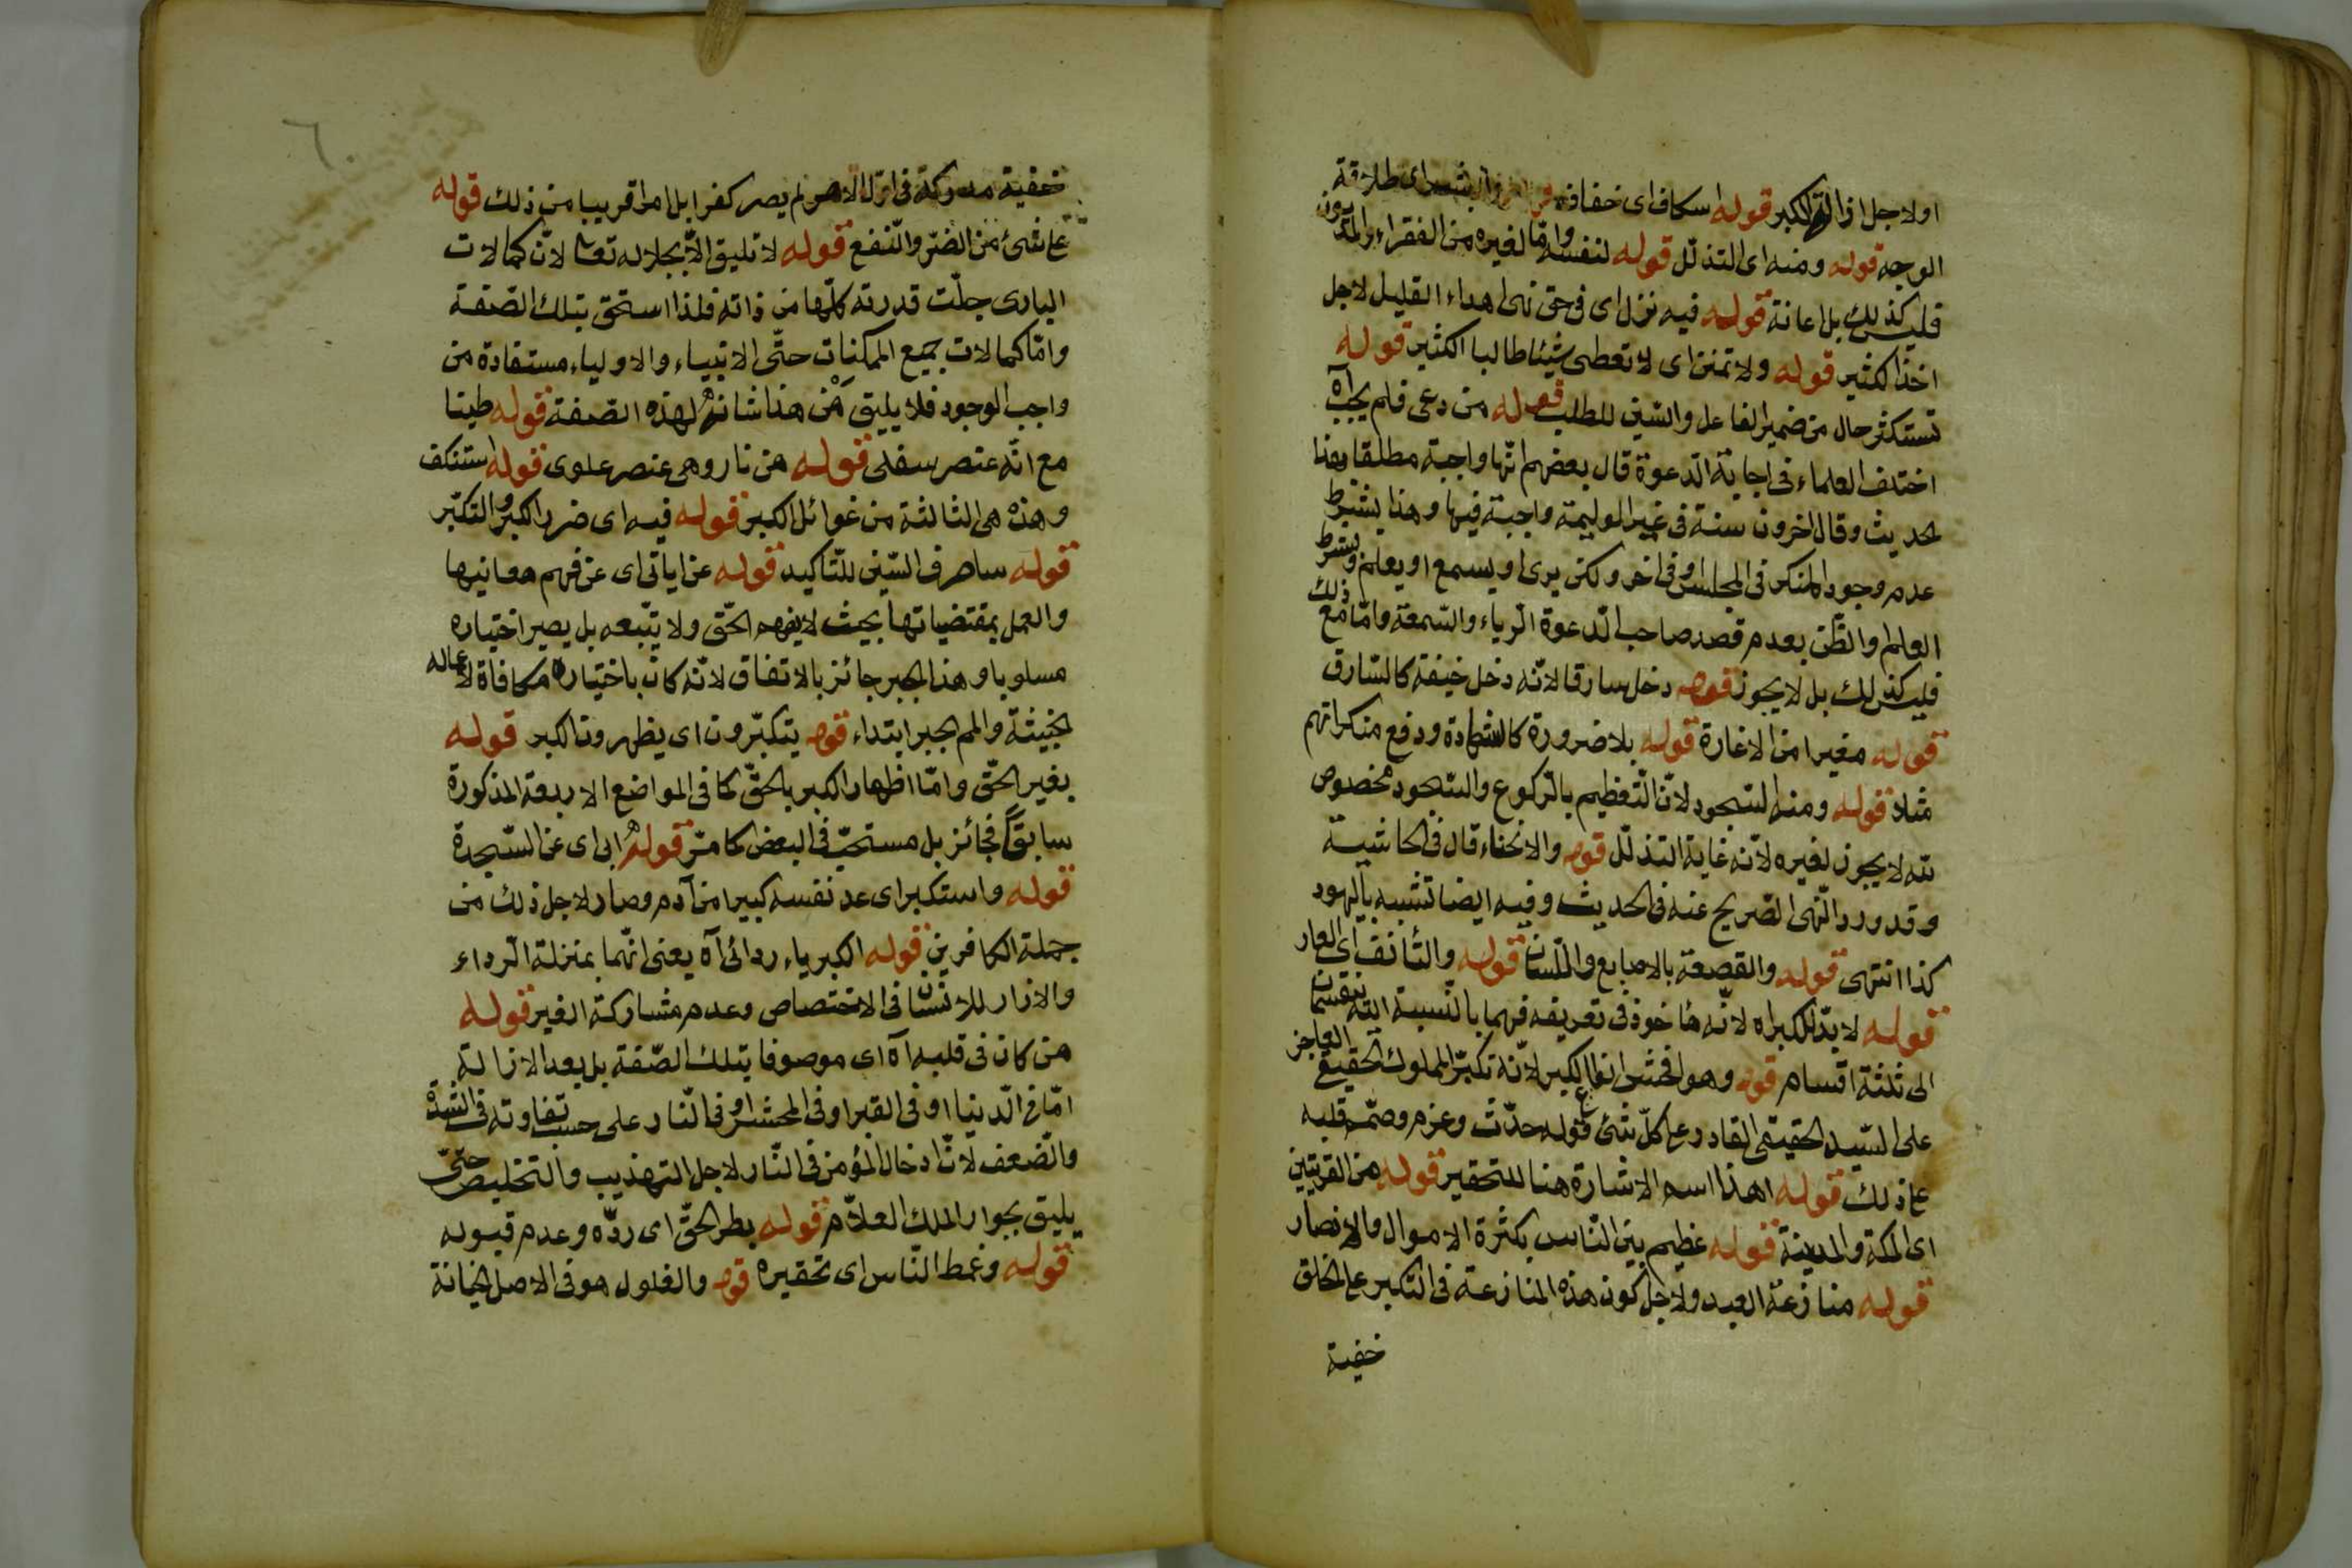 اولاجل ازالة الكبر قوله اسكاف اى خفاف والبشر اى طلاقة
الوجه قوله ومنه اى التذلل قوله لنفسه وامّا لغيره من الفقراء والمديون
فليس كذلك بل اعانة قوله فيه نزل اى فى حق نهى اهداء القليل لاجل
اخذ الكثير قوله ولا تمنن اى لا تعطى شيئا طالبا الكثير قوله
تستكثر حال من ضمير الفاعل والسّين للطلب قوله من دعى فلم يجب آه
اختلف العلماء فى اجابة الدّعوة قال بعضهم انّها واجبة مطلقا بهذا
لحديث وقال اخرون سنة فى غير الوليمة واجبة فيها وهذا بشرط
عدم وجود المنكر فى المجلس او فى اخر ولكن يرى او يسمع او يعلم وبشرط
العلم والظّن بعدم قصد صاحب الدّعوة الرّياء والسّمعة وامّا مع ذلك
فليس كذلك بل لا يجوز قوله دخل سارقا لانّه دخل خيفة كالسّارق
قوله مغيرا من الاغارة قوله بلا ضرورة كالشهادة ودفع منكراتهم
مثلا قوله ومنه السّجود لانّ التّعظيم بالرّكوع والسّجود مخصوص
لله لا يجوز لغيره لانّه غاية التذلّل قوله والانحناء قال فى الحاشية
وقد ورد النّهى الصّريح عنه فى الحديث وفيه ايضا تشبيه باليهود
كذا انتهى قوله والقصعة بالاصابع واللّسان قوله والتأنف اى العار
قوله لا بدّ للكبر اه لانّه مأخوذ فى تعريفه فهما بالنّسبة اليه ينقسمان
الى ثلثة اقسام قوله وهو افحش انواع الكبر لانّه تكبّر المملوك الحقيقى العاجز
على السّيد الحقيقى القادر على كلّ شئ قوله حدّث وعزم وصمّم قلبه
على ذلك قوله اهذا اسم الاشارة هنا للتحقير قوله من القريتين
اى المكة والمدينة قوله عظيم بين النّاس بكثرة الاموال والانصار
قوله منازعة العبد ولاجل كون هذه المنازعة فى التكبر على الخلق
خفية
٦
خفية مدركة فى لم يصر كفرا بل امرا قريبا من ذلك قوله
على شئ من الضرّ والنّفع قوله لا تليق الاّ بجلاله تعا لانّ كمالات
البارى جلّت قدرته كلّها من ذاته فلذا استحق بتلك الصّفة
وامّا كمالات جميع الممكنات حتّى الانبياء والاولياء مستفادة من
واجب الوجود فلا يليق مَنْ هذا شانه لهذه الصّفة قوله طينا
مع انّه عنصر سفلى قوله من نار وهى عنصر علوى قوله استنكف
وهذه هى الثالثة من غوائل الكبر قوله فيه اى ضرر الكبر والتكبّر
قوله ساصرف السّين للتّاكيد قوله عن اياتى اى عن فهم معانيها
والعمل بمقتضياتها بحيث لا يفهم الحقّ ولا يتّبعه بل يصير اختياره
مسلوبا وهذا الجبر جائز بالاتفاق لانّه كان باختياره مكافاة لاعماله
الخبيثة والمم يجبر ابتداء قوله يتكبّرون اى يظهرون الكبر قوله
بغير الحقّ وامّا اظهار الكبر بالحقّ كما فى المواضع الاربعة المذكورة
سابقًا فجائز بل مستحبّ فى البعض كما مرّ قوله ابى اى عن السّجدة
قوله واستكبر اى عد نفسه كبيرا من آدم وصار لاجل ذلك من
جملة الكافرين قوله الكبرياء ردائى آه يعنى انّهما بمنزلة الرّداء
والازار للانسان فى الاختصاص وعدم مشاركة الغير قوله
من كان فى قلبه آه اى موصوفا بتلك الصّفة بل بعد الازالة
امّا فى الدّنيا او فى القبر او فى المحشر او فى النّار على حسب تفاوته فى الشدّة
والضّعف لانّ ادخال المؤمن فى النّار لاجل التهذيب والتخليص حتّى
يليق بجوار الملك العلاّم قوله بطر الحقّ اى ردّه وعدم قبوله
قوله وغمط النّاس اى تحقيره قوله والغلول هو فى الاصل الخيانة